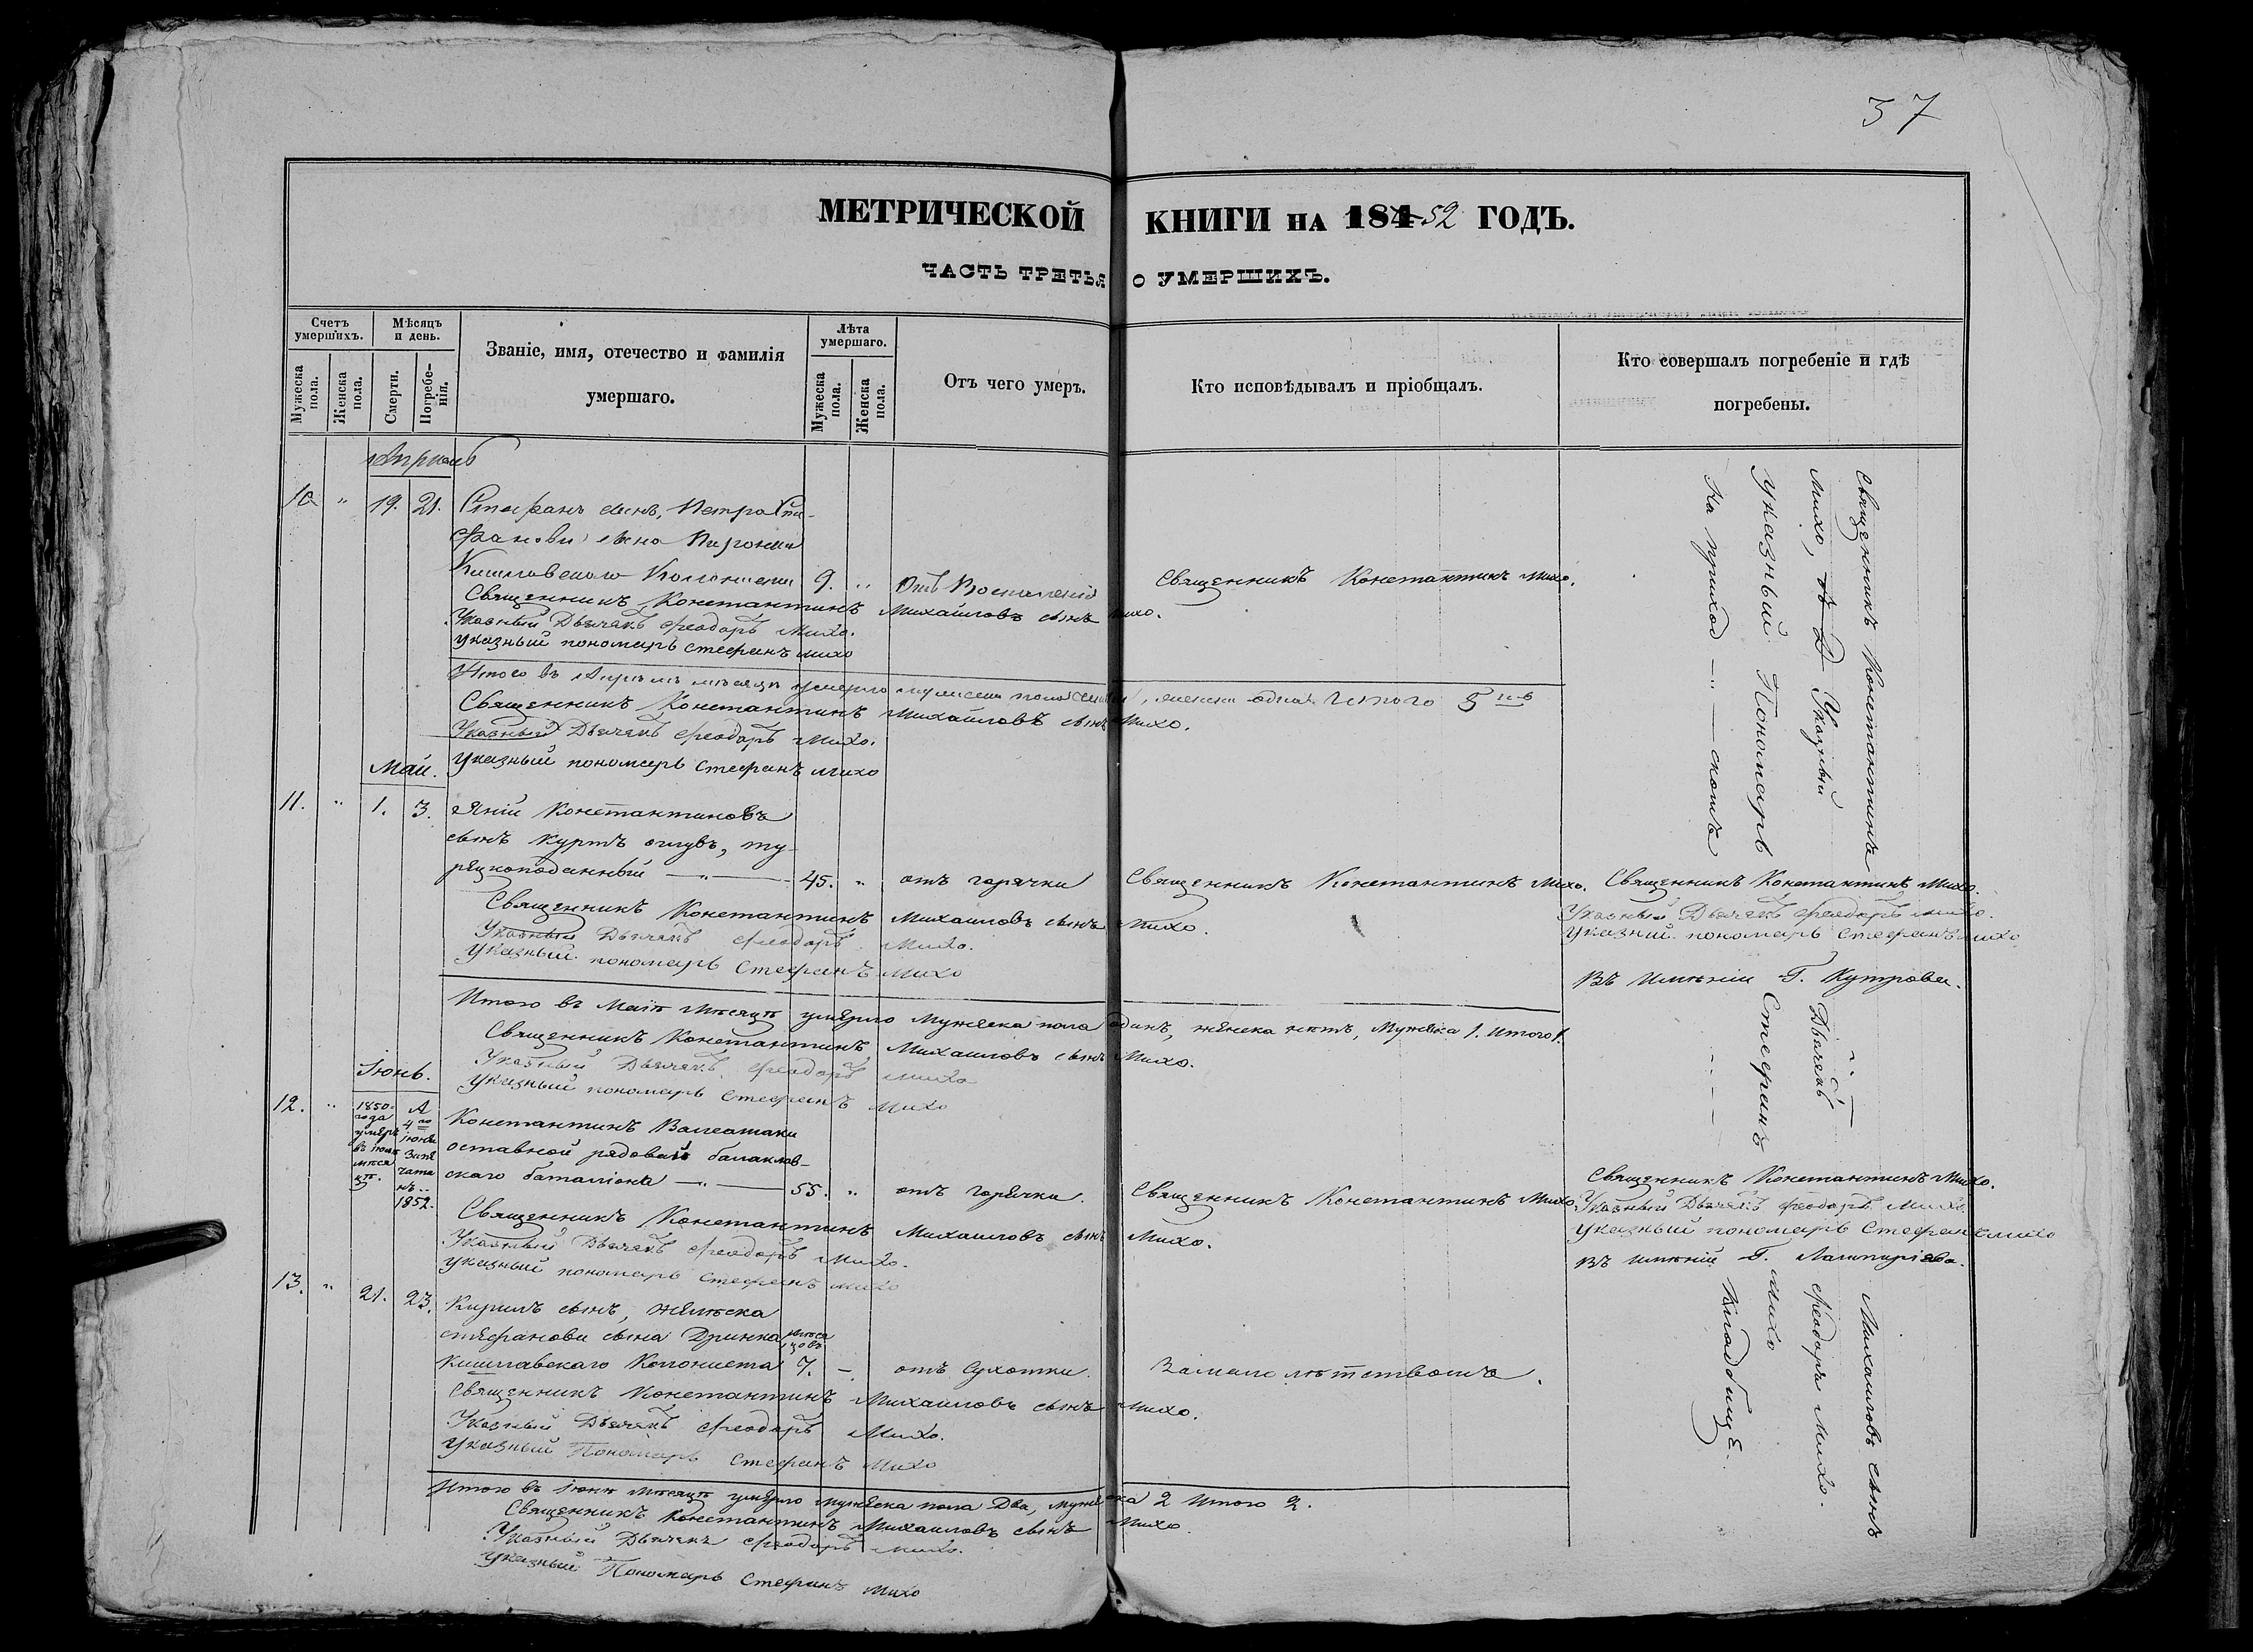 57
МЕТРИЧЕСКОЙ КНИГИ НА 184 52 ГОДЪ.
ЧАСТЬ ТРЕТЬЯ О УМЕРШИХЪ.
Счетъ умершихъ.
Мѣсяцъ и день.
Званіе, имя, отечество и фамилія умершаго.
Лѣта умершаго.
Отъ чего умеръ.
Кто исповѣдывалъ и пріобщалъ.
Кто совершалъ погребеніе и гдѣ погребены.
Мужеска пола.
Женска пола.
Смерти.
Погребенія.
Мужеска пола.
Женска пола.
Апрель
10 " 19. 21. Стефанъ сынъ, Петра Сте-
фанови сына
Кишлавскаго Колониста 9. " Отъ Воспаленія Священникъ Константинъ Михо.
Священникъ Константинъ Михайловъ сынъ Михо.
Указный Дьячекъ Феодоръ Михо.
Указный пономарь Стефанъ Михо
Итого въ Апрѣлѣ мѣсяцѣ умерло мужеска пола женска одна Итого 5
Священникъ Константинъ Михайловъ сынъ Михо.
Указный Дьячекъ Феодоръ Михо.
Указный пономарь Стефанъ Михо
Май.
11. " 1. 3. Яній Константиновъ
сынъ Куртъ оглувъ, ту-
рецкоподанный — " — 45. " отъ горячки Священникъ Константинъ Михо. Священникъ Константинъ Михо.
Священникъ Константинъ Михаиловъ сынъ Михо.
Указный Дьячекъ Феодоръ Михо.
Указный Дьячекъ Феодоръ Михо.
Указний пономарь Стефанъ Михо
Указный пономарь Стефанъ Михо
Въ Имѣніи Г. Кутрова.
Итого въ Маіѣ Мѣсяцѣ умерло Мужеска пола одинъ, женска нѣтъ, Мужска 1. Итого 1.
Священникъ Константинъ Михаиловъ сынъ Михо.
Указный Дьячекъ Феодоръ Михо
Указный пономарь Стефанъ Михо
Іюнь.
12. " 1850. года умеръ въ мѣсяцѣ.
А 4го іюня запечатанъ.. 1852.
Константинъ
оставной рядовой балаклав-
скаго баталіона — " — 55. " отъ горячки. Священникъ Константинъ Михо.
Священникъ Константинъ Михо.
Указный Дьячекъ Феодоръ Михо.
Указный пономарь Стефанъ Михо
Въ Имѣніи Г. Лампиріева.
Священникъ Константинъ Михаиловъ сынъ Михо.
Указный Дьячекъ Феодоръ Михо.
Указный пономарь Стефанъ Михо
13. " 21. 23. Кирилъ сынъ, Желѣска
стефанови сына Дринка мѣсяцовъ
Кишлавскаго Колониста 7. — отъ Сухотки. За малолѣтствомъ.
Священникъ Константинъ Михаиловъ сынъ Михо.
Указный Дьячекъ Феодоръ Михо.
Указный Пономарь Стефанъ Михо
Итого въ Іюнѣ Мѣсяцѣ умерло мужеска пола Два, мужеска 2 Итого 2.
Священникъ Константинъ Михаиловъ сынъ Михо.
Указный Дьячекъ Феодоръ Михо.
Указный Пономарь Стефанъ Михо
Священникъ Константинъ Михаиловъ сынъ
Михо, Указный Дьячекъ Феодоръ Михо.
Указный Пономарь Стефанъ Михо
На приход — " — скомъ Кладбищѣ.